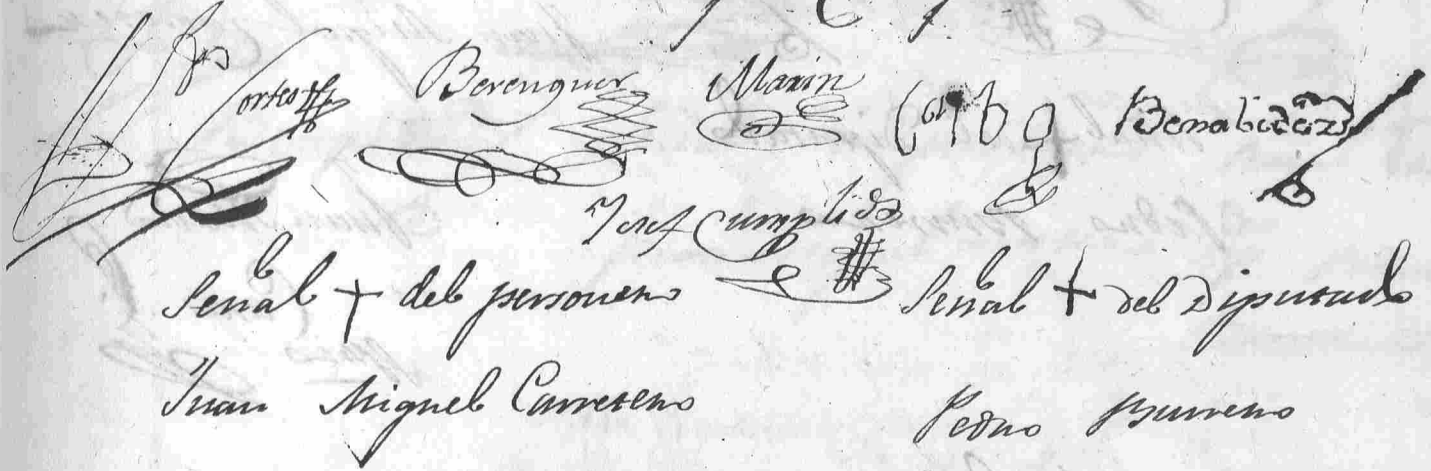 Cortes Berenguer Marin Benabides
Josef Cumplido
Señal + del personero Señal + del Diputado
Juan Miguel Carretero Pedro Burrero